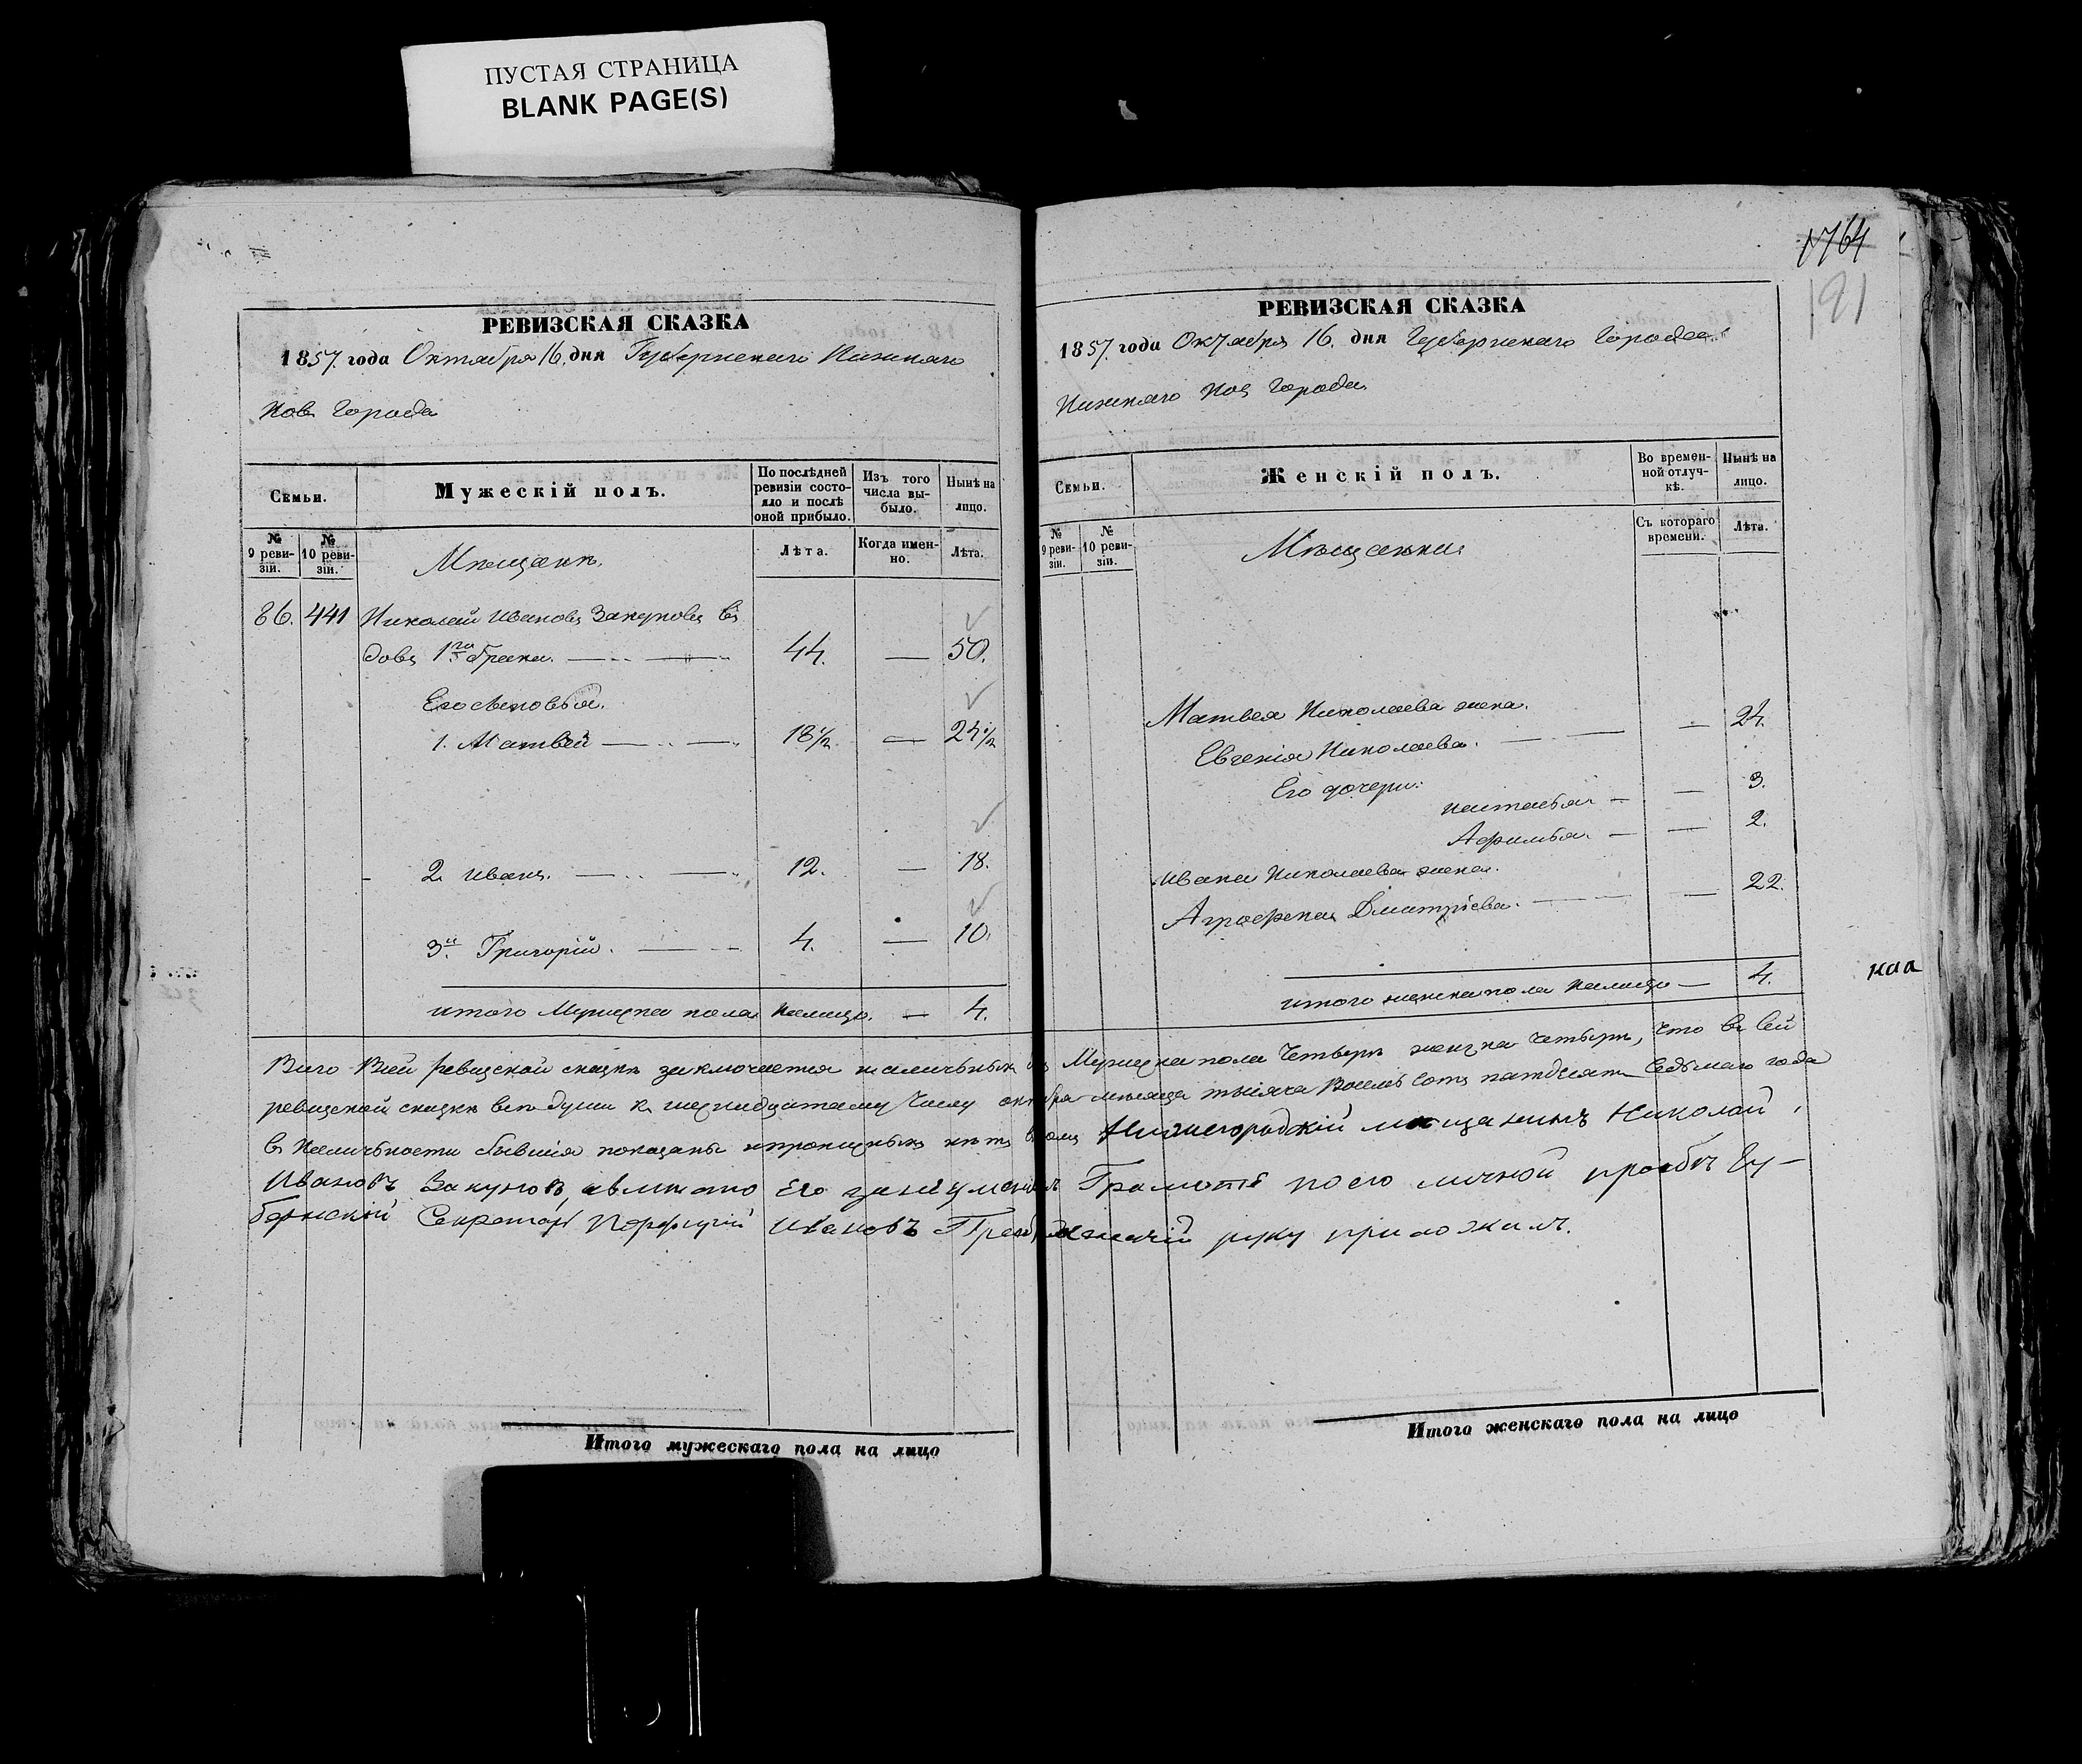 ПУСТАЯ СТРАНИЦА
BLANK PAGE(S)
РЕВИЗСКАЯ СКАЗКА
1857. года Октября 16. дня Губернскаго Нижняго
Нов Города
Семьи.
Мужескій полъ.
По послѣдней ревизіи состояло и послѣ оной прибыло.
Изъ того числа выбыло.
Нынѣ на лицо.
№ 9 ревизіи.
№ 10 ревизіи.
Мѣщанъ.
Лѣта.
Когда именно.
Лѣта.
86. 441 Николай Ивановъ Закуновъ в
довъ 1го брака. 44. — 50.
Его сыновья.
1. Матвей 18 1/2 — 24 1/2
2. Иванъ. 12. — 18.
3й Григорій. 4. — 10.
итого Мужска пола налицо. — 4.
1764
191
РЕВИЗСКАЯ СКАЗКА
1857. года Октября 16. дня Губернскаго Города
Нижняго Нов Города
Семьи.
Женскій полъ.
Во временной отлучкѣ.
Нынѣ на лицо.
№ 9 ревизіи.
№ 10 ревизіи.
Мѣщанки
Съ котораго времени.
Лѣта.
Матвея Николаева жена.
Евгенія Николаева. — 24.
Его дочери:
Наталья — — 3.
Афимья. — — 2.
Ивана Николаева жена.
Аграфена Дмитріева. — 22.
итого женска пола налицо — 4.
каа
Всего в сей ревиской скаске заключается наличныхъ Мужска пола Четверо женска четыре, что в сей
ревиской скаске все души к шеснадцатому Числу октября месяца тысяча восемь сотъ пятдесят Седьмаго года
в Наличности бывшія показаны и прописныхъ нетъ Нижегородскій мещанинъ Николай
Ивановъ Закуновъ, а вместо Его за неуменіем Грамоте по его личной просьбе Гу-
бернский Секретарь Порфирій Ивановъ руку приложилъ.
Итого мужескаго пола на лицо
Итого женскаго пола на лицо